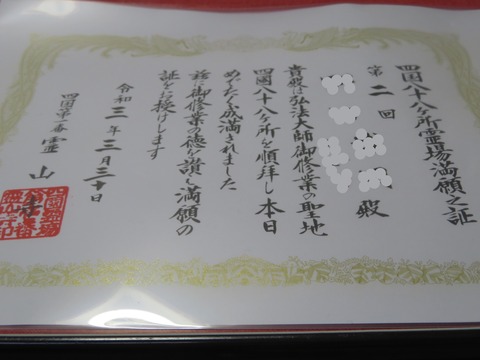 四国八十八ヶ所霊場満願之証
第二回
殿
貴殿は弘法大師御修業の聖地
四國八十八ヶ所を順拝し本日
めでたく成満されました
茲に御修業の徳を讃し満願の
証をお授けします
令和三年三月三十日
四国第一番霊山寺